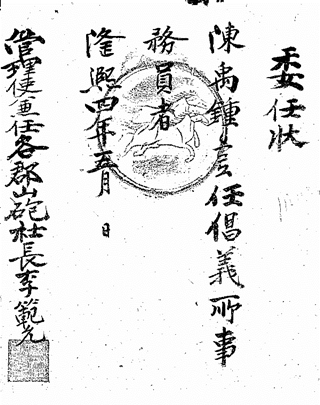 委任狀
陳禹鍾差任倡義所事
務員者
隆熙四年五月 日
管理使兼任各郡山砲社長李範允